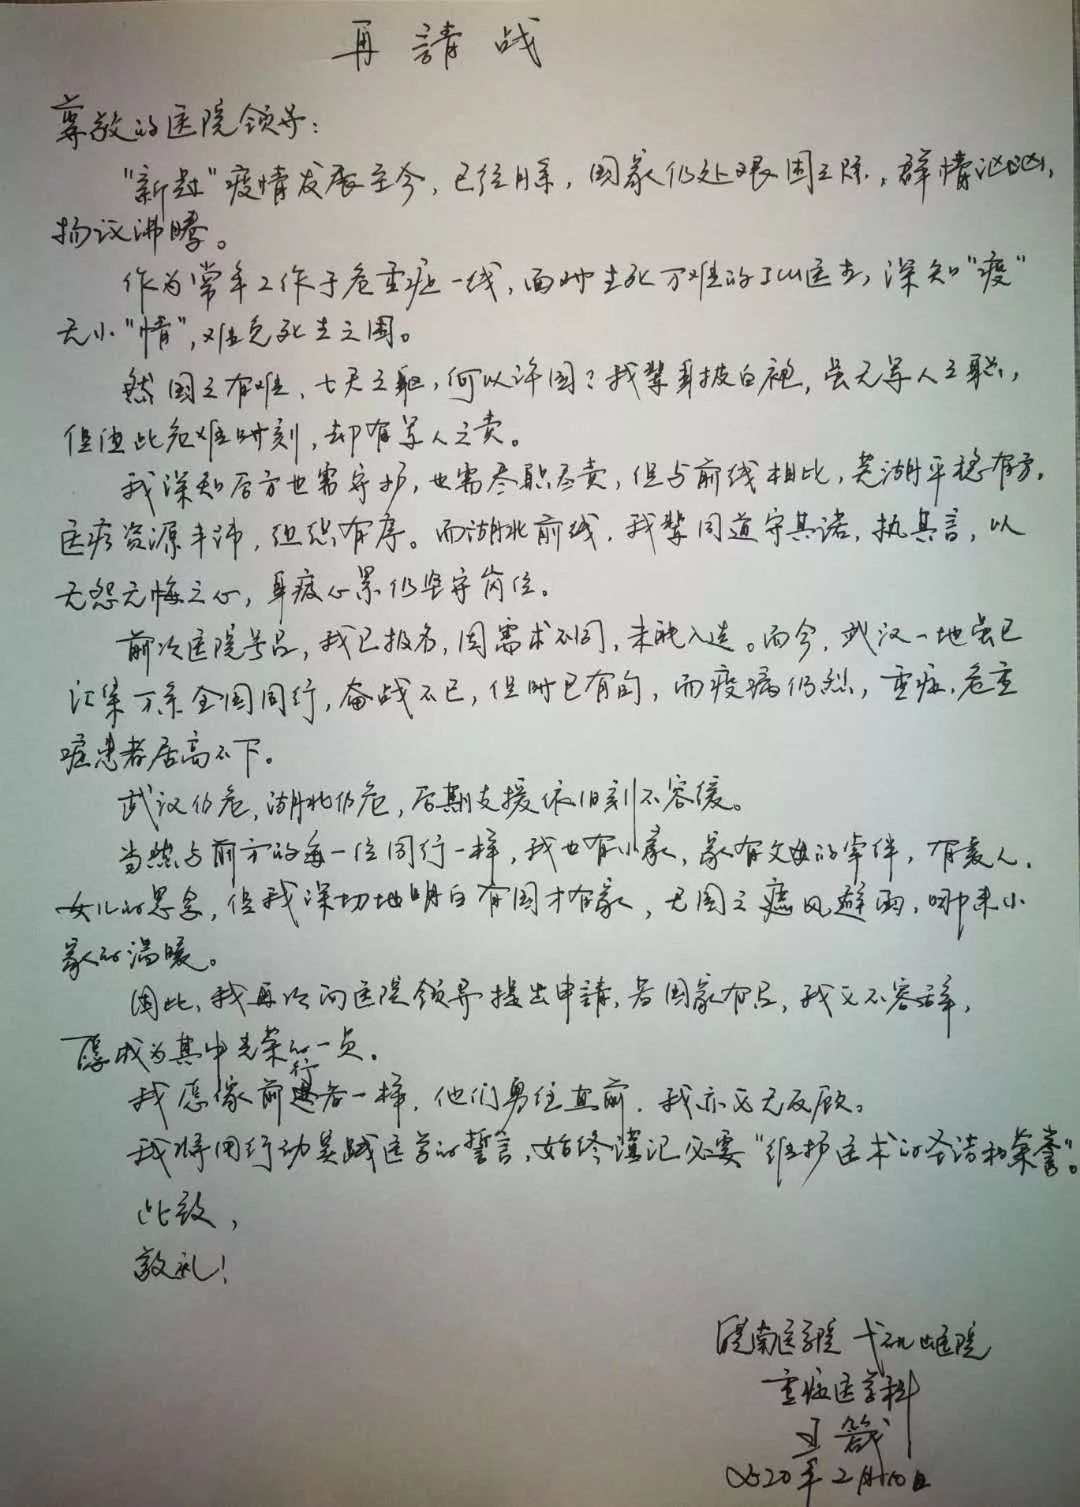 再請战
尊敬的医院领导：
"新冠"疫情发展至今，已经月余，国家仍处艰困之际，群情汹汹，
扬议沸腾。
作为常年工作于危重症一线，面对生死万难的ICU医生，深知"疫"
无小"情"，难免死生之困。
然国之有难，七尺之躯，何以许国？我辈身披白袍，虽无军人之职，
但值此危难时刻，却有军人之责。
我深知后方也需守护，也需尽职尽责，但与前线相比，芜湖平稳有方，
医疗资源丰沛，组织有序。而湖北前线，我辈同道守其诺，执其言，以
无怨无悔之心，身疲心累仍坚守岗位。
前次医院号召，我已报名，因需求不同，未能入选。而今，武汉一地虽已
汇集万余全国同行，奋战不已，但时已有旬，而疫病仍烈，重症、危重
症患者居高不下。
武汉仍危，湖北仍危，后期支援依旧刻不容缓。
当然与前方的每一位同行一样，我也有小家，家有父母的牵绊，有爱人、
女儿的思念，但我深切地明白有国才有家，无国之遮风避雨，哪来小
家的温暖。
因此，我再次向医院领导提出申請，若国家有召，我义不容辞，
愿成为其中光荣的一员。
我愿像前行者一样，他们勇往直前，我亦义无反顾。
我将用行动实践医学的誓言，始终谨记必要"维护医术的圣洁和荣誉"。
此致，
敬礼！
皖南医学院 弋矶山医院
重症医学科
王箴
2020年2月10日